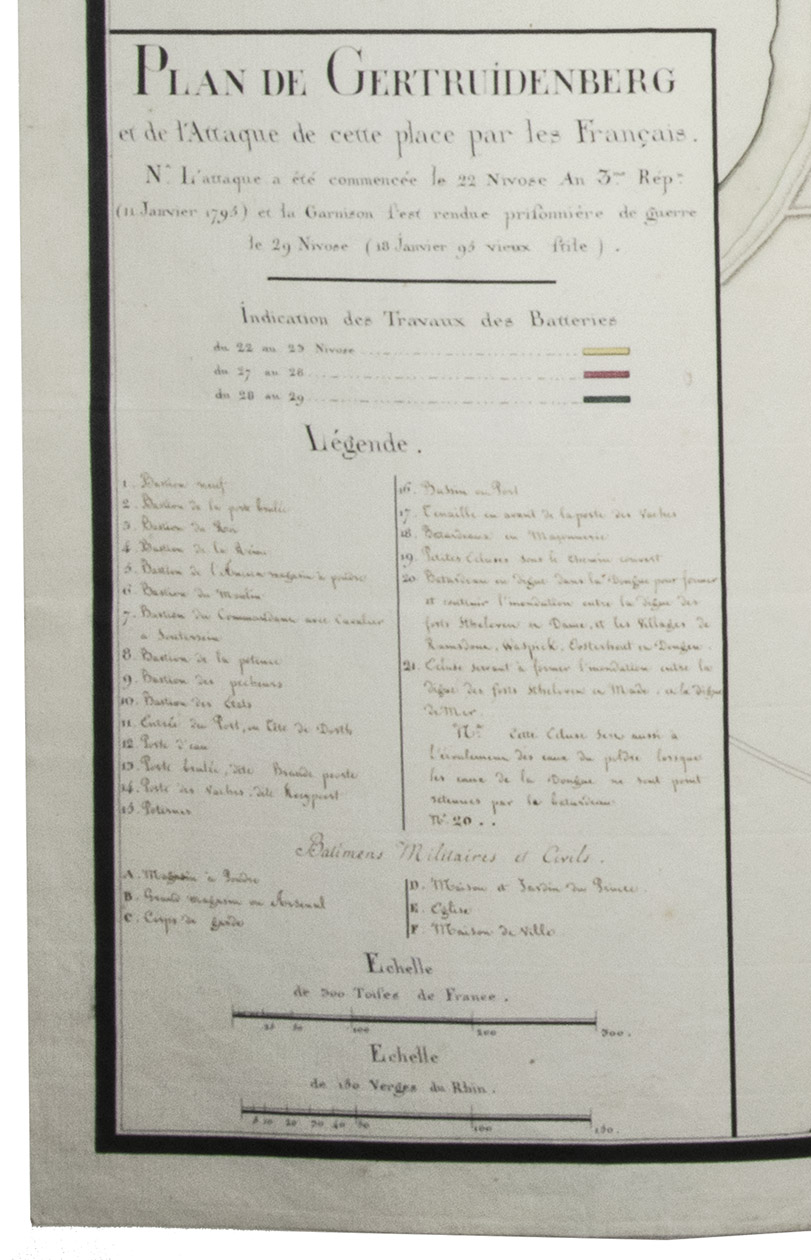 PLAN DE GERTRUIDENBERG
et de l'Attaque de cette place par les Français.
Nᵃ L'attaque a été commencée le 22 Nivose An 3ᵐᵉ Répⁿ
(11 Janvier 1795) et la Garnison s'est rendue prisonniére de guerre
le 29 Nivose (18 Janvier 95 vieux stile).
Indication des Travaux des Batteries
du 22 au 25 Nivose
du 27 au 28
du 28 au 29
Légende.
1. Bastion neuf
2. Bastion de la porte brulée
3. Bastion du Roi
4. Bastion de la Reine
5. Bastion de l'Ancien magasin à poudre
6. Bastion du Moulin
7. Bastion du Commandant avec Cavalier
a Souterrein
8. Bastion de la potence
9. Bastion des pecheurs
10. Bastion des Etats
11. Entrée du Port, ou Tête de
12. Porte d'eau
13. Porte brulée, dite Brande poorte
14. Porte des Vaches, dite
15. Poternes
16. Bassin ou Port
17. Tenaille en avant de la porte des Vaches
18. Batardeaux en Maçonnerie
19. Petites Ecluses sous le Chemin couvert
20. Batardeau ou digue dans la Dongue pour former
et contenir l'inondation entre la digue des
forts Stheloven et Dame, et les Villages de
Ramsdone, Waspick, Oosterhout et Dongen.
21. Ecluse servant à former l'inondation entre la
digue des forts Stheloven et Made, et la digue
de Mer.
Nᵃ Cette Ecluse sert aussi à
l'écoulement des eaux du poldre lorsque
les eaux de la Dongue ne sont point
retenues par le batardeau
Nº 20..
Bâtimens Militaires et Civils.
A. Magasin à Poudre
B. Grand magasin ou Arsenal
C. Corps de garde
D. Maison et Jardin du Prince.
E. Eglise
F. Maison de Ville
Echelle
de 300 Toises de France.
25 50 100 200 300.
Echelle
de 150 Verges du Rhin.
5 10 20 30 40 50 100 150.